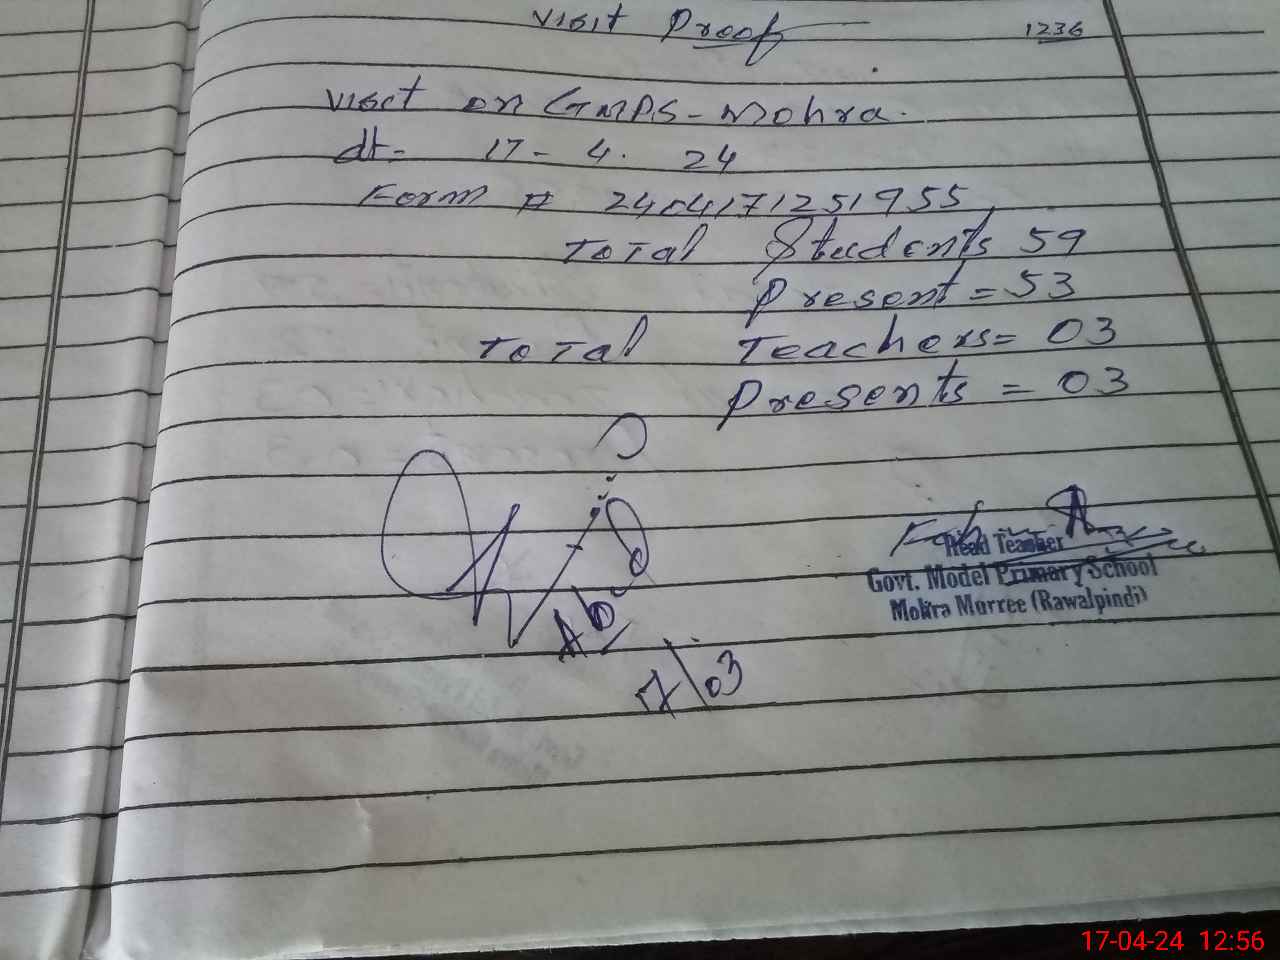 Visit Proof
1236
Visit on GMPS-Mohra.
dt- 17-4.24
Form # 2404171251955
Total Students 59
Present = 53
Total Teachers = 03
Presents = 03
Head Teacher
Govt. Model Primary School
Mohra Murree (Rawalpindi)
17-04-24 12:56